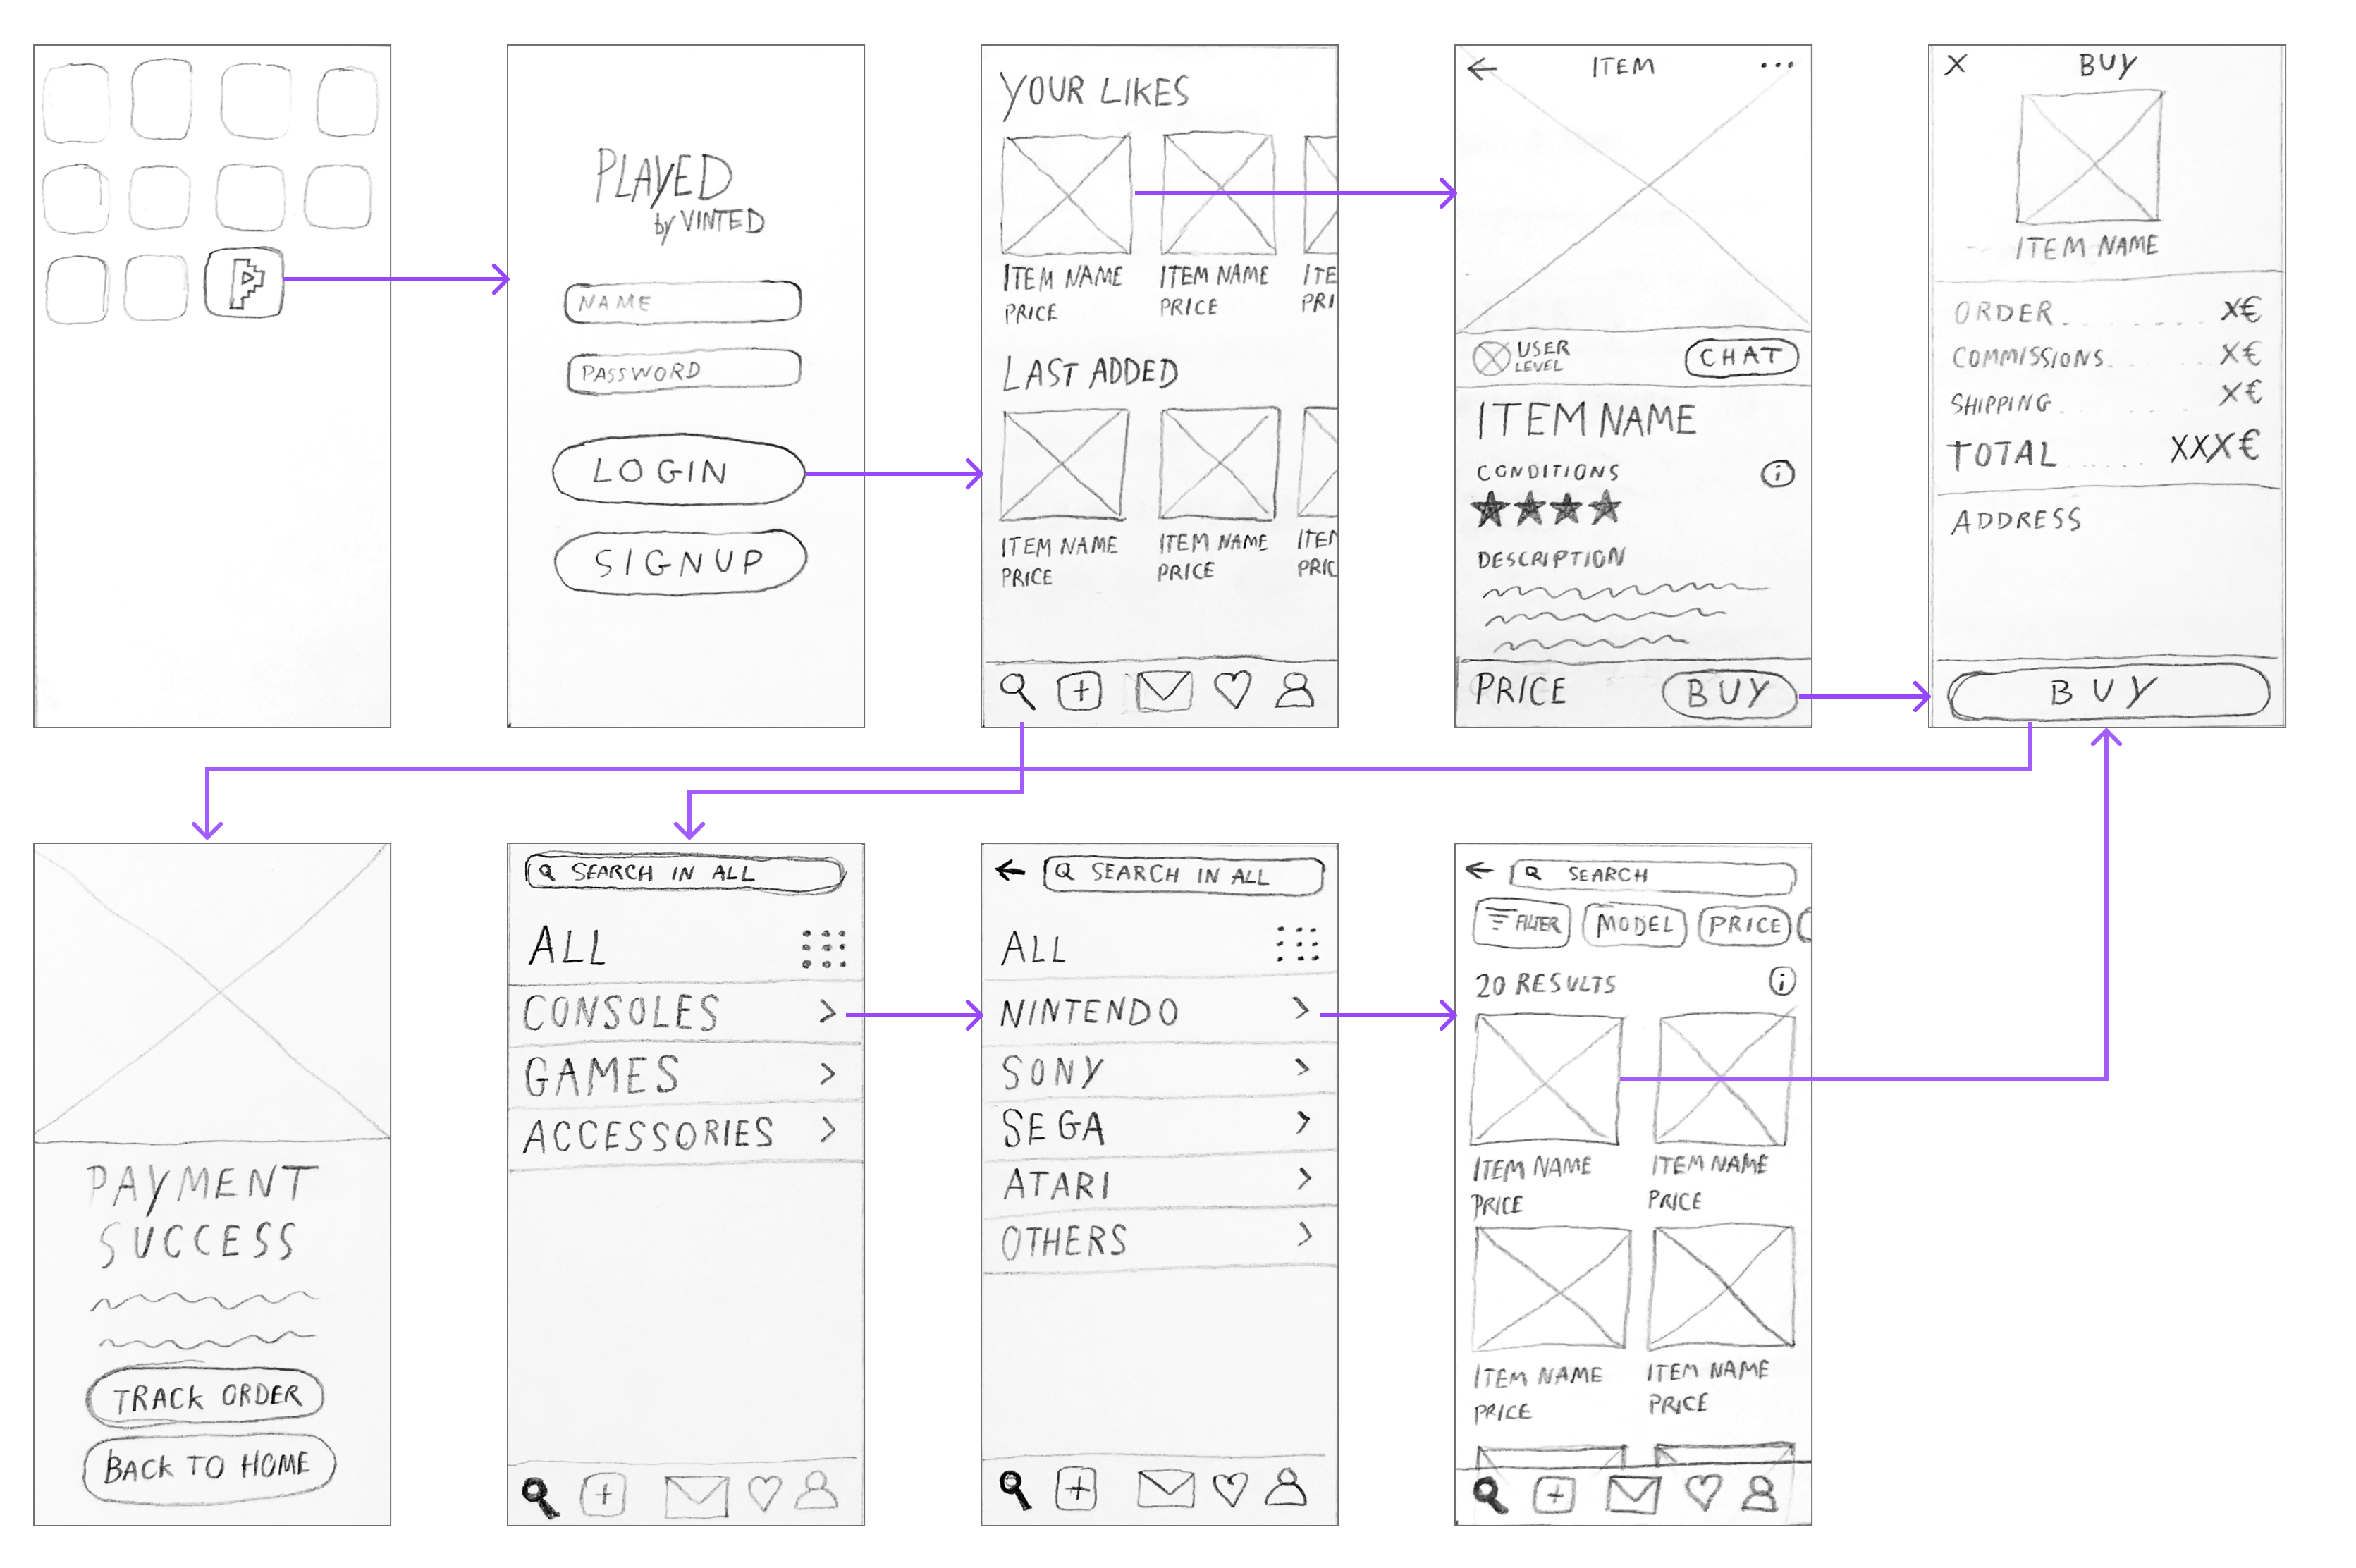 PLAYED
by VINTED
NAME
PASSWORD
LOGIN
SIGNUP
YOUR LIKES
ITEM NAME ITEM NAME ITE
PRICE PRICE PRI
LAST ADDED
ITEM NAME ITEM NAME ITEM
PRICE PRICE PRIC
ITEM
USER
LEVEL
CHAT
ITEM NAME
CONDITIONS
i
DESCRIPTION
PRICE BUY
X BUY
ITEM NAME
ORDER........ X€
COMMISSIONS.. X€
SHIPPING..... X€
TOTAL ...... XXX€
ADDRESS
BUY
PAYMENT
SUCCESS
TRACK ORDER
BACK TO HOME
SEARCH IN ALL
ALL
CONSOLES >
GAMES >
ACCESSORIES >
SEARCH IN ALL
ALL
NINTENDO >
SONY >
SEGA >
ATARI >
OTHERS >
SEARCH
FILTER MODEL PRICE
20 RESULTS i
ITEM NAME ITEM NAME
PRICE PRICE
ITEM NAME ITEM NAME
PRICE PRICE